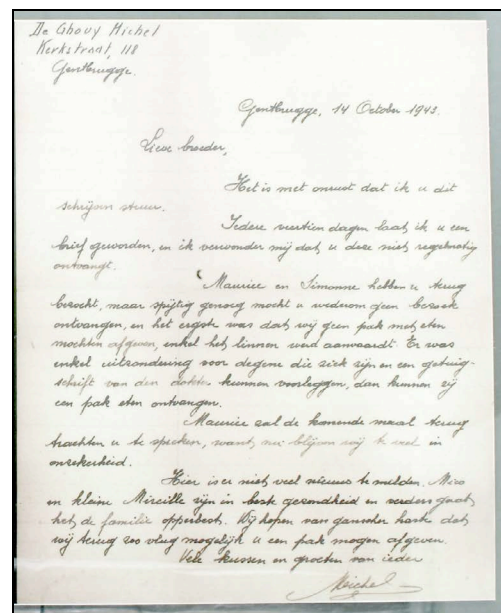 De Ghouy Michel
Kerkstraat, 118
Gentbrugge.
Gentbrugge, 14 October 1943.
Lieve broeder,
Het is met onrust dat ik u dit
schrijven stuur.
Iedere veertien dagen laat ik u een
brief geworden, en ik verwonder mij dat u deze niet regelmatig
ontvangt.
Maurice en Simonne hebben u terug
bezocht, maar spijtig genoeg mocht u wederom geen bezoek
ontvangen, en het ergste was dat wij geen pak met eten
mochten afgeven, enkel het linnen werd aanvaardt. Er was
enkel uitzondering voor degene die ziek zijn en een getuig-
schrift van den dokter kunnen voorleggen, dan kunnen zij
een pak eten ontvangen.
Maurice zal de komende maal terug
trachten u te spreken, want nu blijven wij te veel in
onzekerheid.
Hier is er niet veel nieuws te melden.
en kleine Mireille zijn in best gezondheid en verders gaat
het de familie opperbest. Wij hopen van ganscher harte dat
wij terug zoo vlug mogelijk u een pak mogen afgeven.
Vele kussen en groeten van ieder
Michel